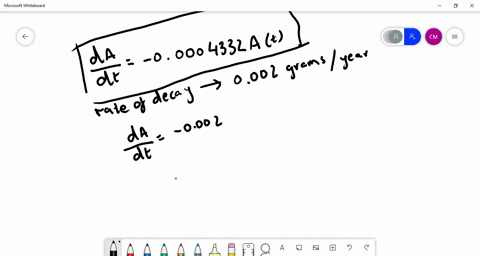 Microsoft Whiteboard
CM
dA/dt = -0.0004332 A(t)
rate of decay → 0.002 grams/year
dA/dt = -0.002